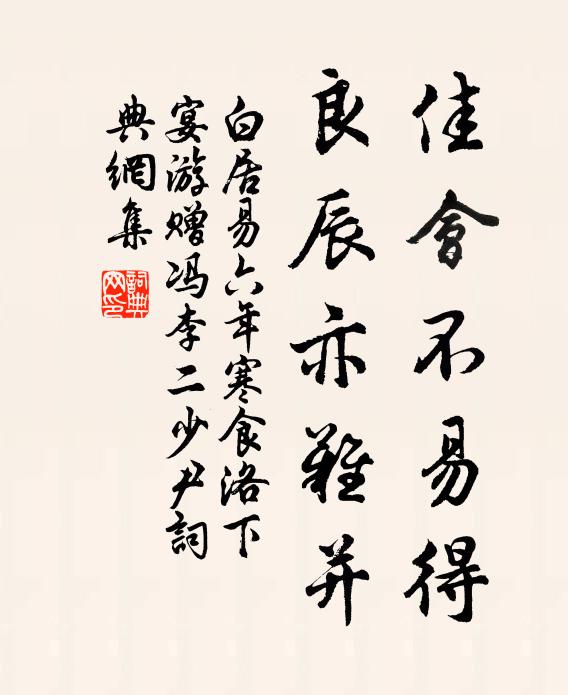 佳會不易得
良辰亦難并
白居易六年寒食洛下
宴游贈馮李二少尹詞
典網集
詞典
网印